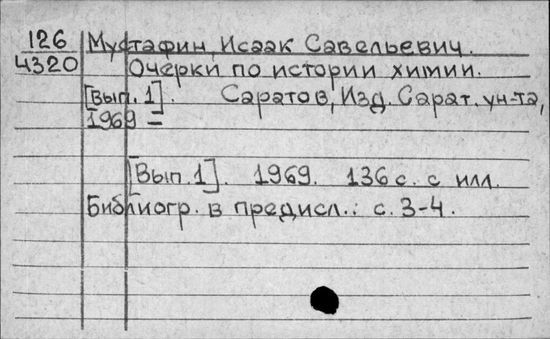 126 Мустафин, Исаак Савельевич.
4320 Очерки по истории химии.
[Вып. 1]. Саратов, Изд. Сарат. ун-та,
1969 =
[Вып. 1]. 1969. 136 с. с илл.
Библиогр. в предисл.: с. 3-4.